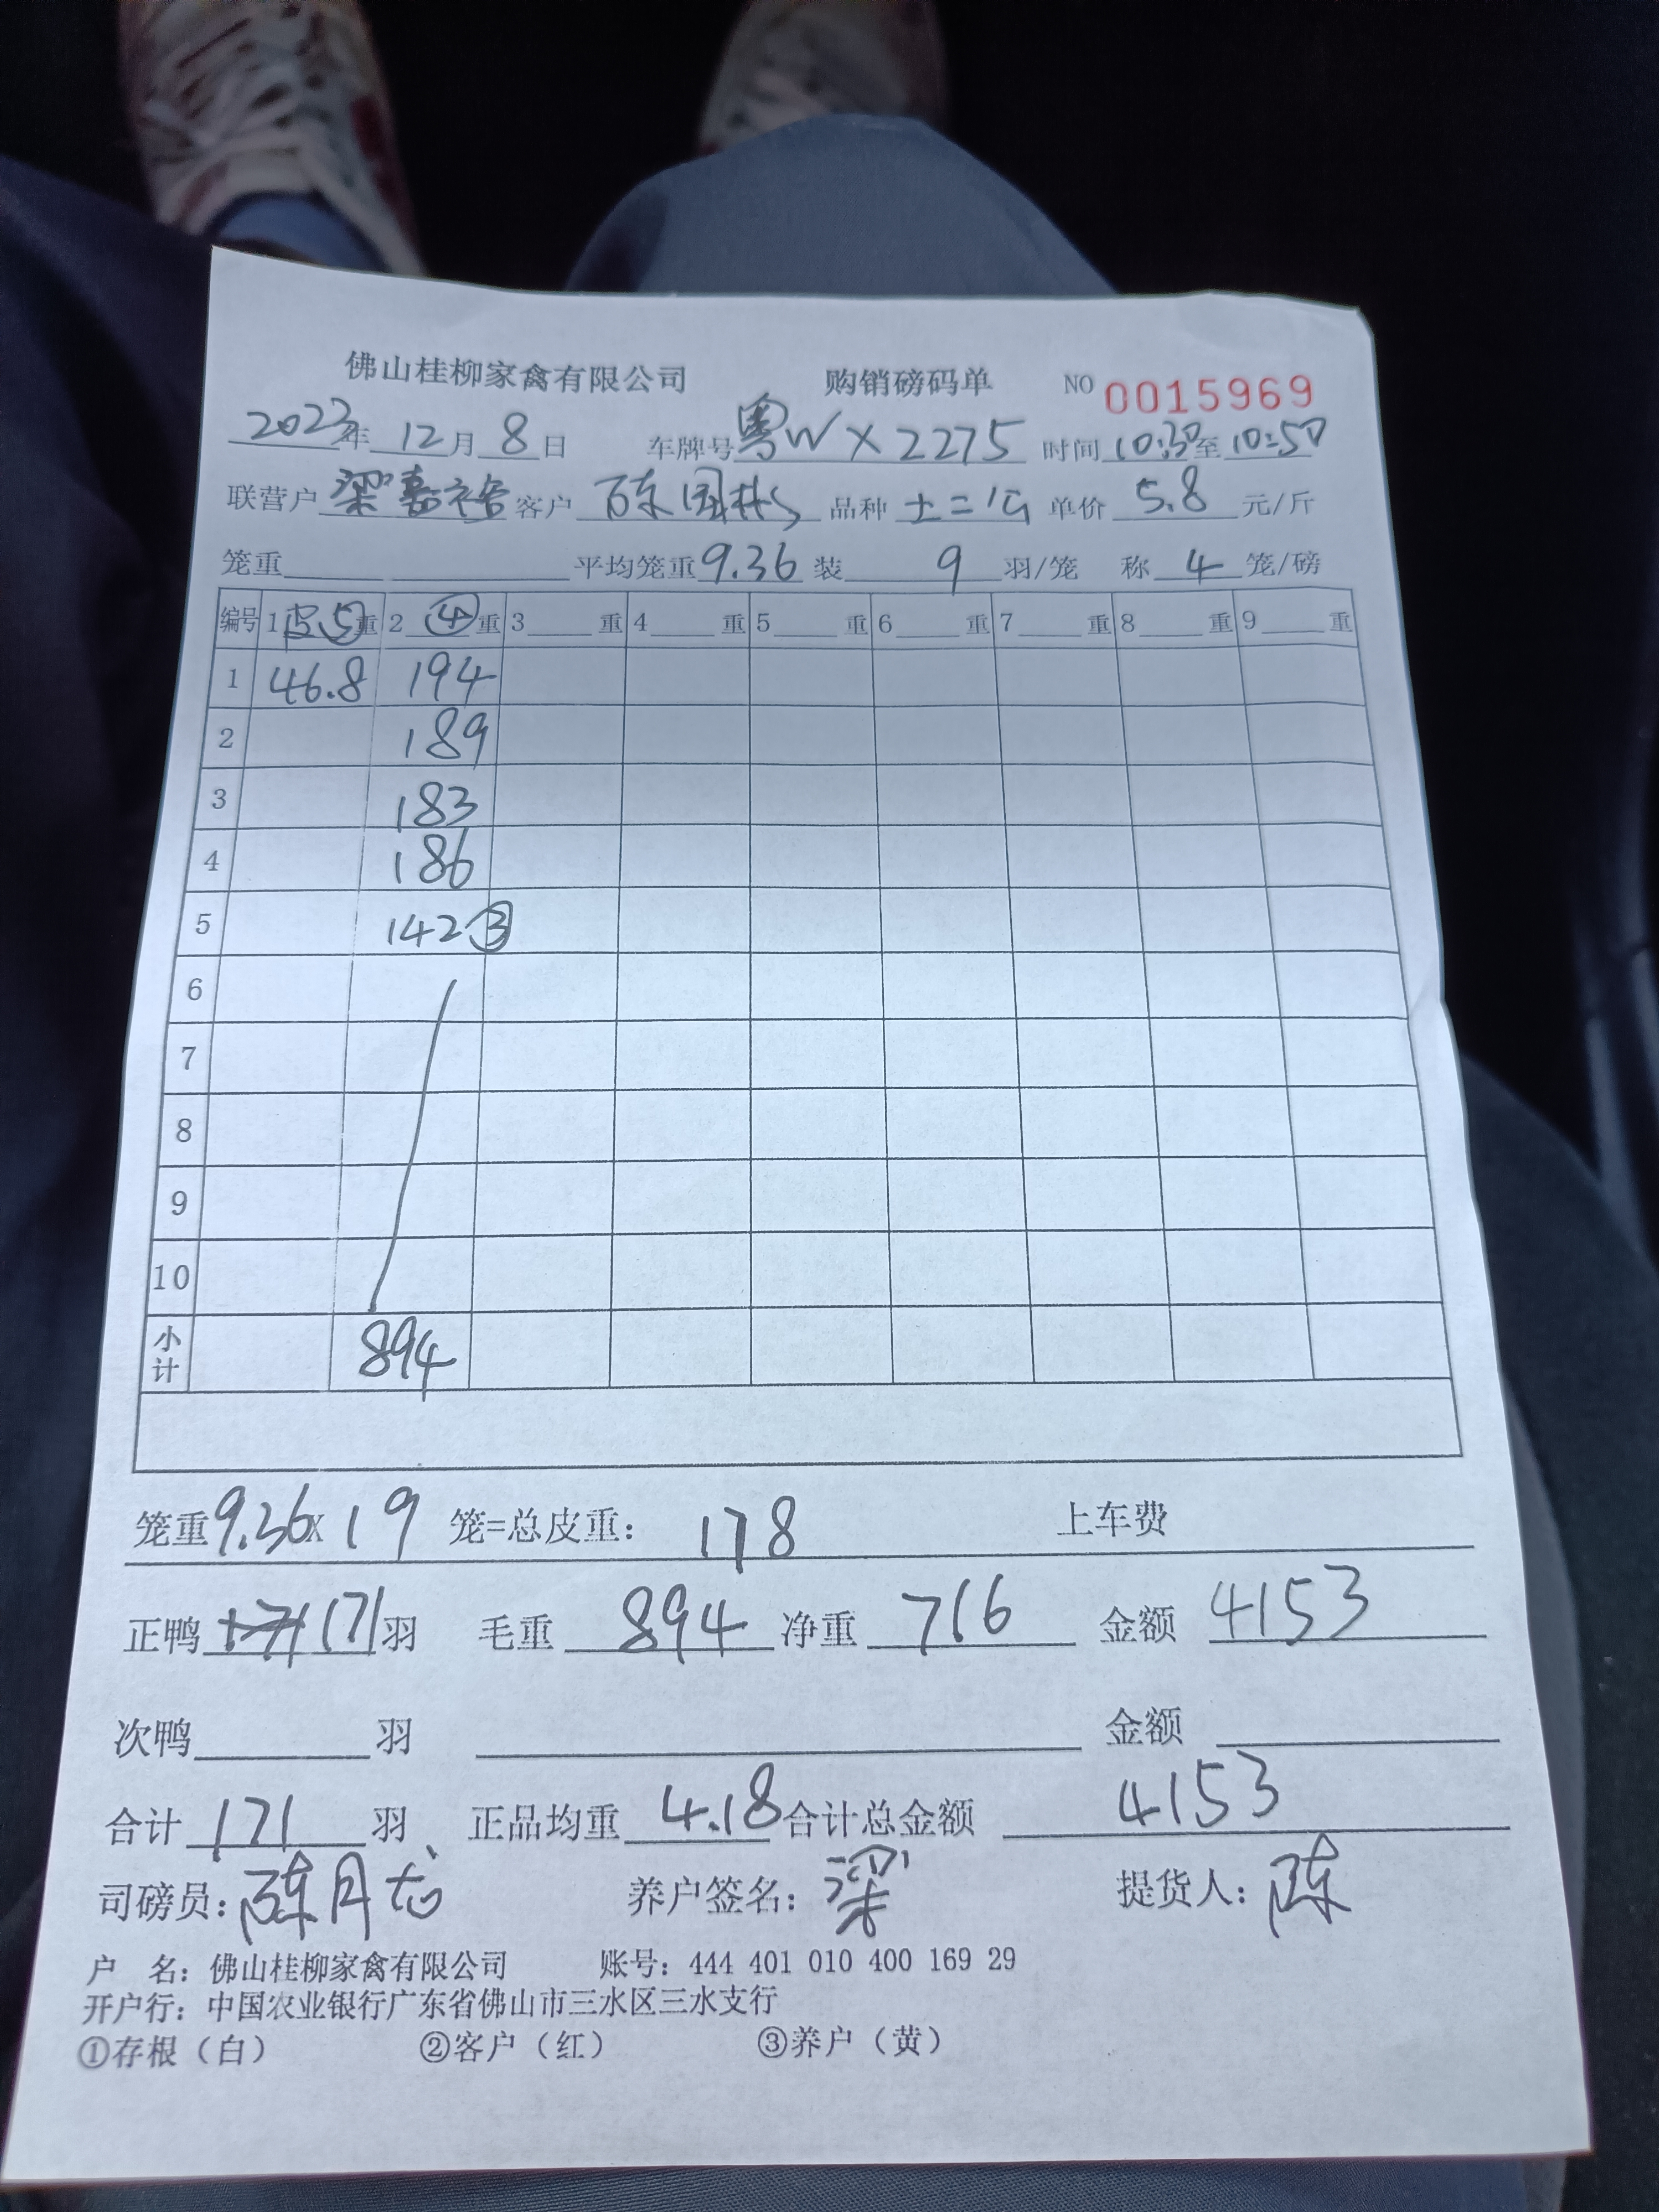 佛山桂柳家禽有限公司 购销磅码单 NO 0015969
2023年 12月 8日 车牌号 粤WX2275 时间 10:30至 10:50
联营户 梁嘉裕 客户 陈国彬 品种 土二公 单价 5.8 元/斤
笼重 平均笼重 9.36 装 9 羽/笼 称 4 笼/磅
编号 1 皮⑤重 2 ④重 3 重 4 重 5 重 6 重 7 重 8 重 9 重
1 46.8 194
2 189
3 183
4 186
5 142③
6
7
8
9
10
小计 894
笼重 9.36 x 19 笼=总皮重: 178 上车费
正鸭 171 羽 毛重 894 净重 716 金额 4153
次鸭 羽 金额
合计 171 羽 正品均重 4.18 合计总金额 4153
司磅员: 陈月龙 养户签名: 梁 提货人: 陈
户 名: 佛山桂柳家禽有限公司 账号: 444 401 010 400 169 29
开户行: 中国农业银行广东省佛山市三水区三水支行
①存根(白) ②客户(红) ③养户(黄)